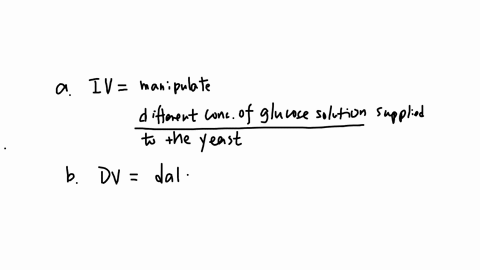 a. IV = manipulate
different conc. of glucose solution supplied
to the yeast
b. DV = dal